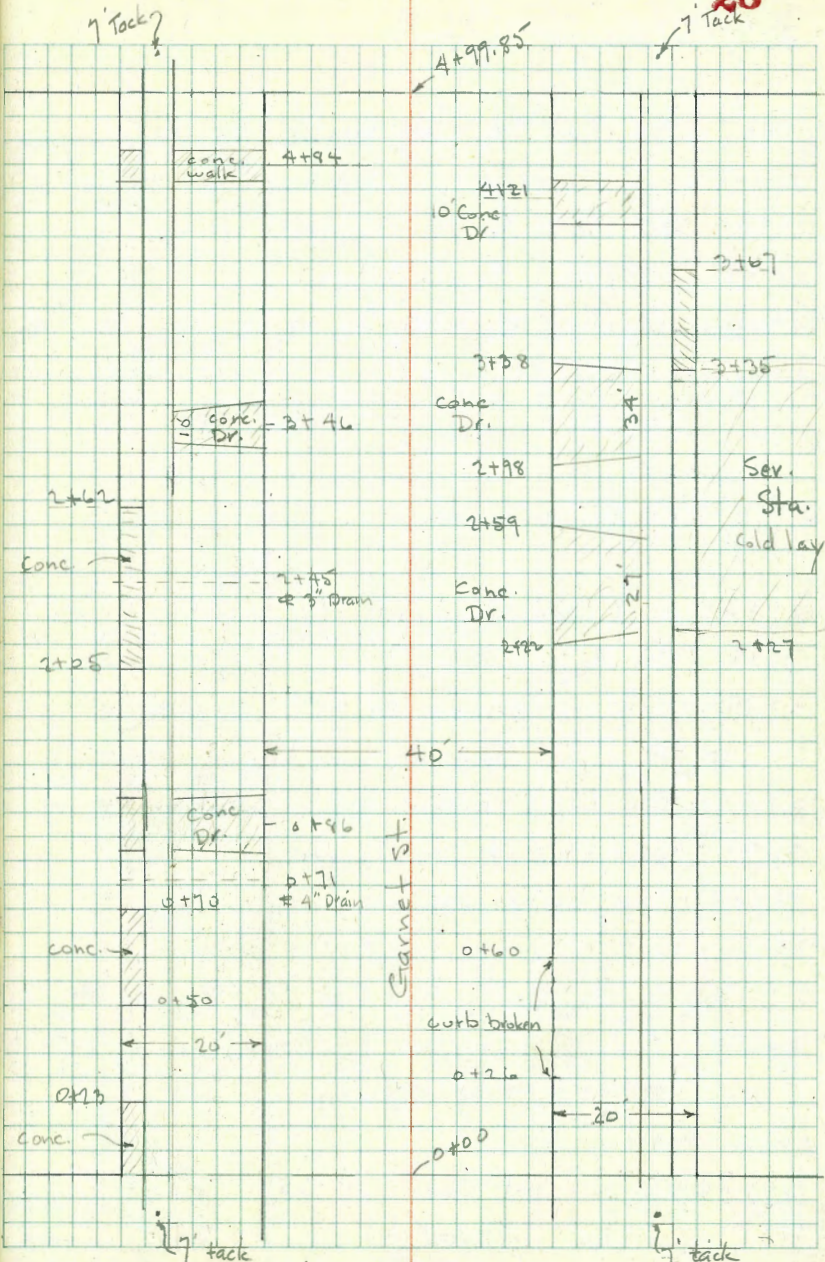 28
7' Tack
7' Tack
4+99.85
conc.
walk
4+84
4+21
10' Conc
Dr
3+67
3+38
3+35
Conc
Dr.
34'
16'
conc.
Dr.
3+46
2+98
Ser.
Sta.
Cold lay
2+62
2+59
Conc
2+45
℄ 3" Drain
Conc.
Dr.
27'
2+05
2+22
2+27
40'
Conc
Dr.
0+86
0+71
℄ 4" Drain
0+70
Garnet St.
conc.
0+60
0+50
curb broken
20'
0+26
0+23
20'
conc.
0+00
7' tack
7' tack